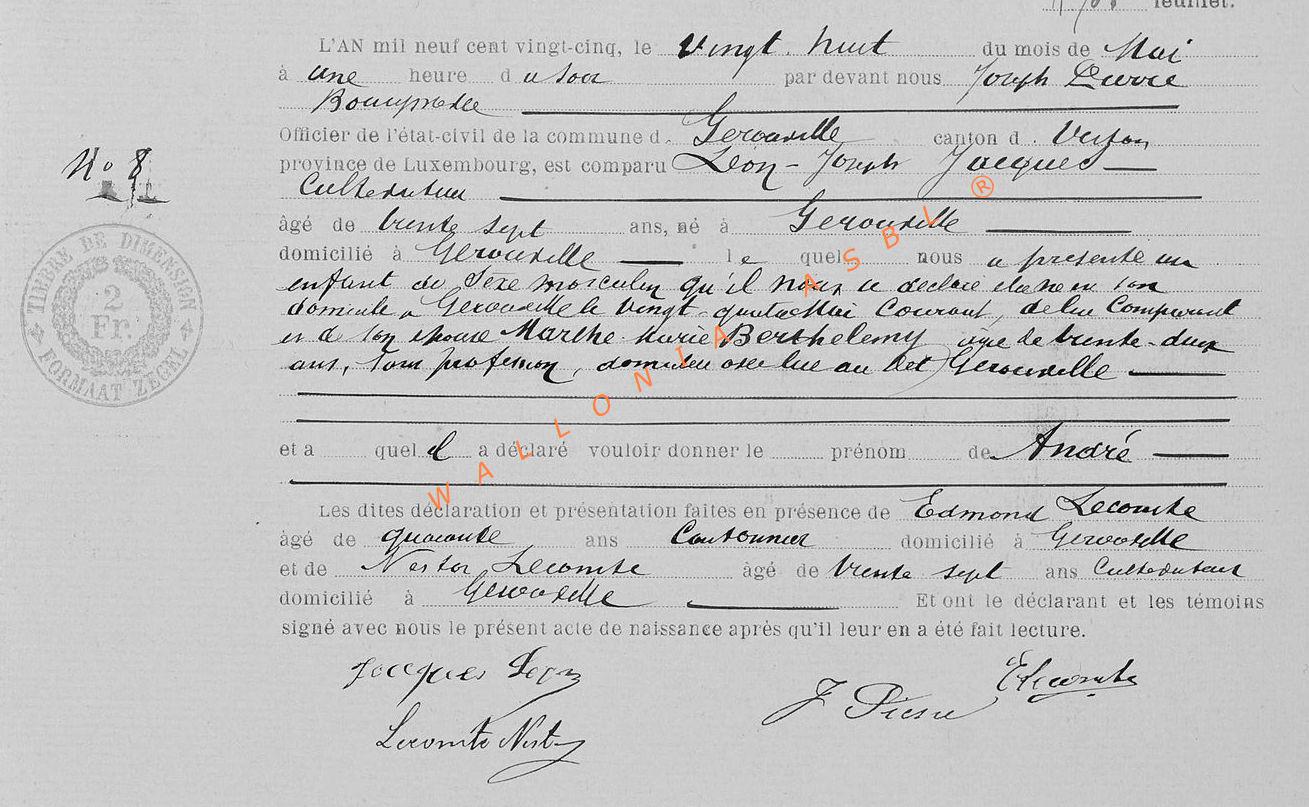 feuillet.
L'AN mil neuf cent vingt-cinq, le Vingt huit du mois de Mai
à une heure du soir par devant nous Joseph Pierre
Bourgmestre
Officier de l'état-civil de la commune d. Gérouville canton d. Virton
province de Luxembourg, est comparu Léon-Joseph Jacques
No 8
Cultivateur
âgé de trente sept ans, né à Gérouville
domicilié à Gérouville le quel nous a présenté un
enfant du sexe masculin qu'il nous a déclaré être né en son
domicile à Gérouville le vingt-quatre Mai courant, de lui comparant
et de son épouse Marthe-Marie Berthelemy âgée de trente-deux
ans, sans profession, domiciliée avec lui au dit Gérouville
et a quel il a déclaré vouloir donner le prénom de André
Les dites déclaration et présentation faites en présence de Edmond Lecomte
âgé de quarante ans Cantonnier domicilié à Gérouville
et de Nestor Lecomte âgé de trente sept ans Cultivateur
domicilié à Gérouville Et ont le déclarant et les témoins
signé avec nous le présent acte de naissance après qu'il leur en a été fait lecture.
Jacques Léon
J Pierre
E Lecomte
Lecomte Nestor
TIMBRE DE DIMENSION
2
Fr.
FORMAAT ZEGEL
WALLONIA ASBL ®